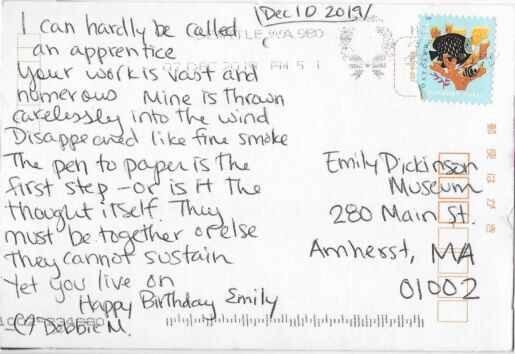 Dec 10 2019
I can hardly be called
an apprentice
Your work is vast and
numerous Mine is thrown
carelessly into the wind
Disappeared like fine smoke
The pen to paper is the
first step - or is it the
thought itself. They
must be together or else
they cannot sustain
Yet you live on
Happy Birthday Emily
Debbie M.
WA 980
07 DEC 2019 PM 5 1
Emily Dickinson
Museum
280 Main St.
Amherst, MA
01002
郵便はがき